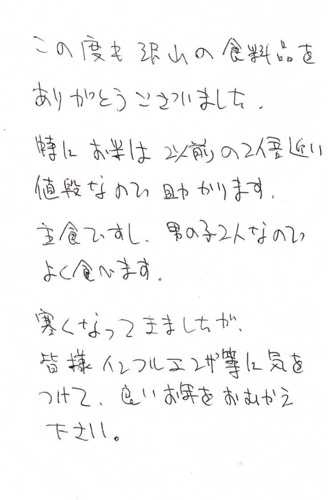 この度も沢山の食料品を
ありがとうございました。
特にお米は以前の2倍近い
値段なので助かります。
主食ですし、男の子2人なので
よく食べます。
寒くなってきましたが、
皆様インフルエンザ等に気を
つけて、良いお年をおむかえ
下さい。